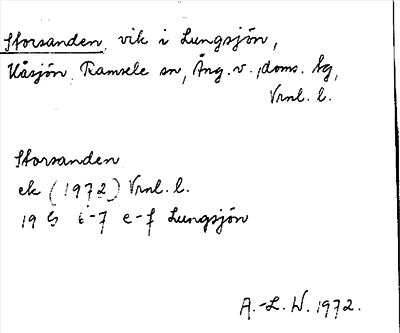 Storsanden, vik i Lungsjön,
Kåsjön, Ramsele sn, Ång. v., doms. tg,
Vrnl. l.
Storsanden
ek (1972) Vrnl. l.
19 G i-7 e-f Lungsjön
A.-L. W. 1972.